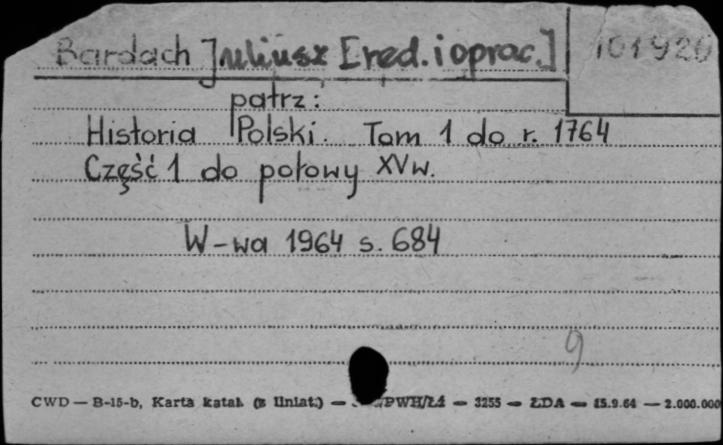 Bardach Juliusz [red. i oprac.] 101920
patrz:
Historia Polski. Tom 1 do r. 1764
Część 1 do połowy XV w.
W-wa 1964 s. 684
9
CWD — B-15-b, Karta katal. (z liniat.) — PWH/Ł4 — 3255 — ŁDA — 15.9.64 — 2.000.000